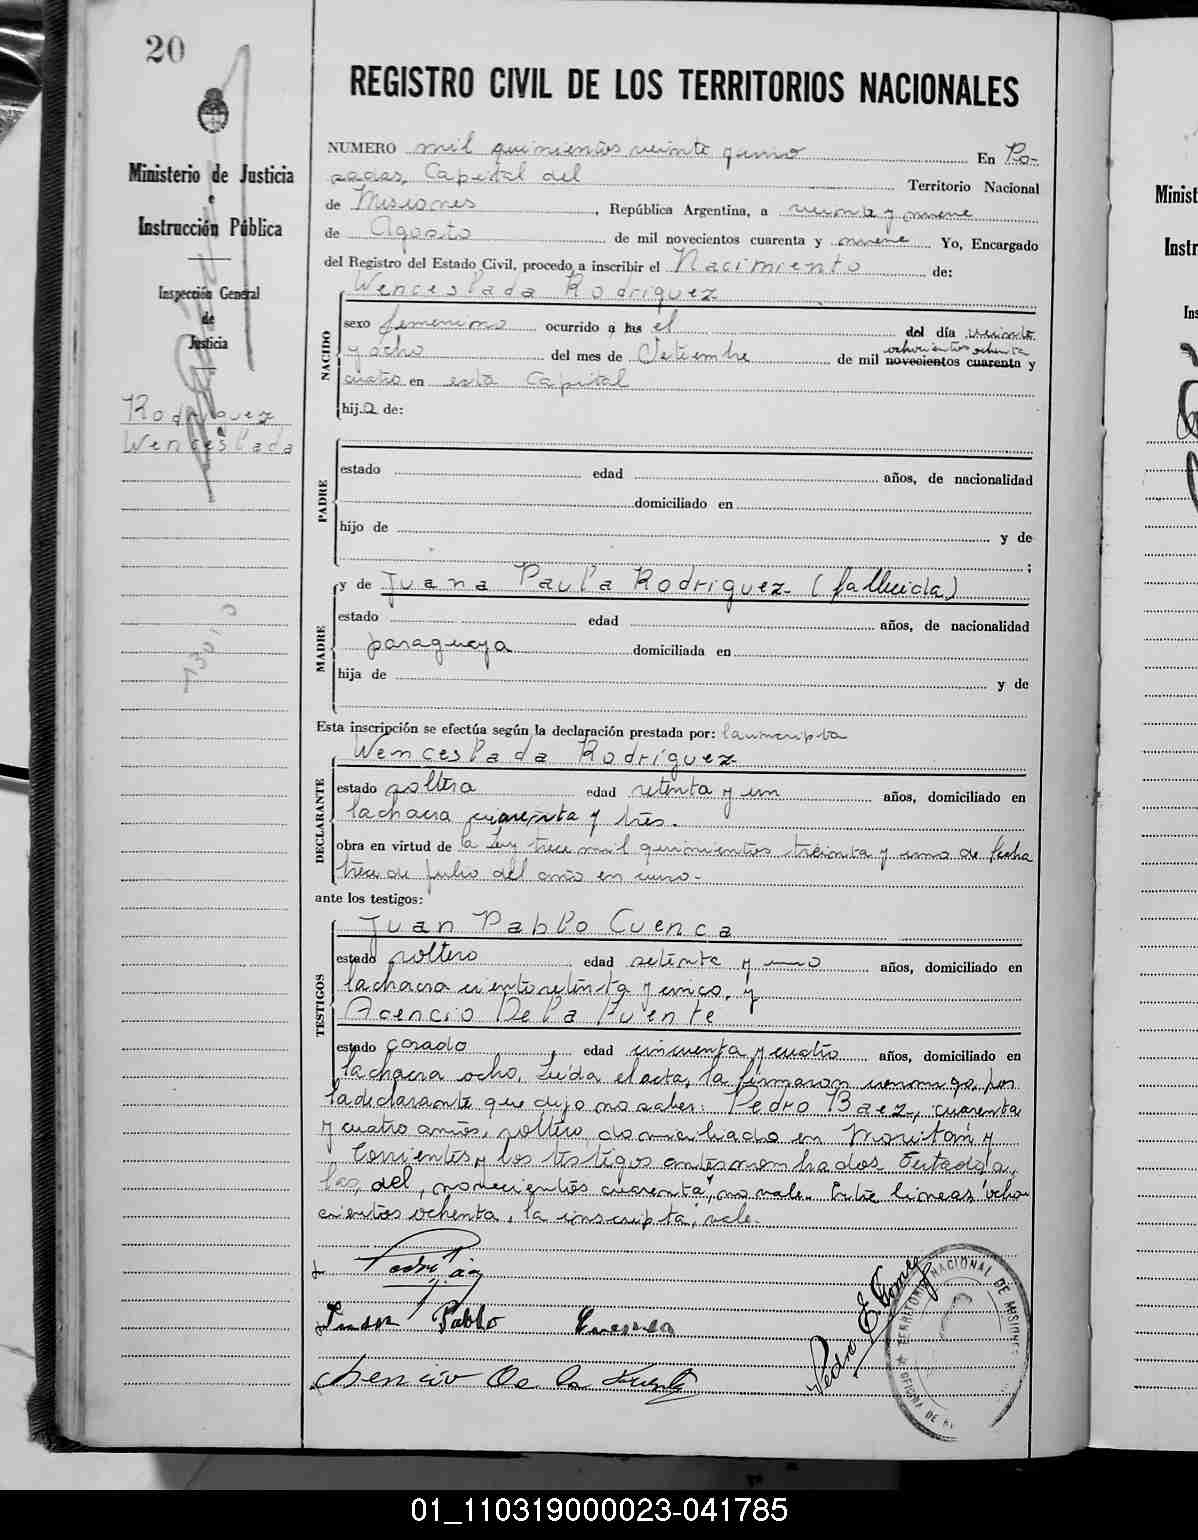 20
REGISTRO CIVIL DE LOS TERRITORIOS NACIONALES
Ministerio de Justicia
e
Instrucción Pública
Inspección General
de
Justicia
Rodriguez
Wenceslada
NUMERO mil quinientos veinte y uno En Po-
sadas, Capital del Territorio Nacional
de Misiones, República Argentina, a veinte y nueve
de Agosto de mil novecientos cuarenta y nueve Yo, Encargado
del Registro del Estado Civil, procedo a inscribir el Nacimiento de:
Wenceslada Rodriguez
NACIDO
sexo femenino ocurrido a las el del día veinte
ochocientos ochenta
y ocho del mes de Setiembre de mil novecientos cuarenta y
cuatro en esta Capital
hija de:
PADRE
estado edad años, de nacionalidad
domiciliado en
hijo de y de
;
MADRE
y de Juana Paula Rodriguez - (fallecida)
estado edad años, de nacionalidad
paraguaya domiciliada en
hija de y de
Esta inscripción se efectúa según la declaración prestada por: la inscripta
Wenceslada Rodriguez
DECLARANTE
estado soltera edad setenta y un años, domiciliado en
la chacra cuarenta y tres.
obra en virtud de la Ley trece mil quinientos treinta y uno de fecha
trece de julio del año en curso.-
ante los testigos:
TESTIGOS
Juan Pablo Cuenca
estado soltero edad setenta y uno años, domiciliado en
la chacra ciento setenta y cinco, y
Acencio De la Fuente
estado casado edad cincuenta y cuatro años, domiciliado en
la chacra ocho. Leída el acta, la firmaron conmigo, por
la declarante que dijo no saber: Pedro Baez, cuarenta
y cuatro años, soltero, domiciliado en Moritán y
Corrientes, y los testigos antesnombrados. Testado "a
las, del, novecientos cuarenta", no vale. Entre lineas "ocho
cientos ochenta, la inscripta", vale.
Juan Pablo Cuenca
Acencio De la Fuente
Pedro E. Gomez
TERRITORIO NACIONAL DE MISIONES
OFICINA DE
Minist
Instr
Ins
01_110319000023-041785